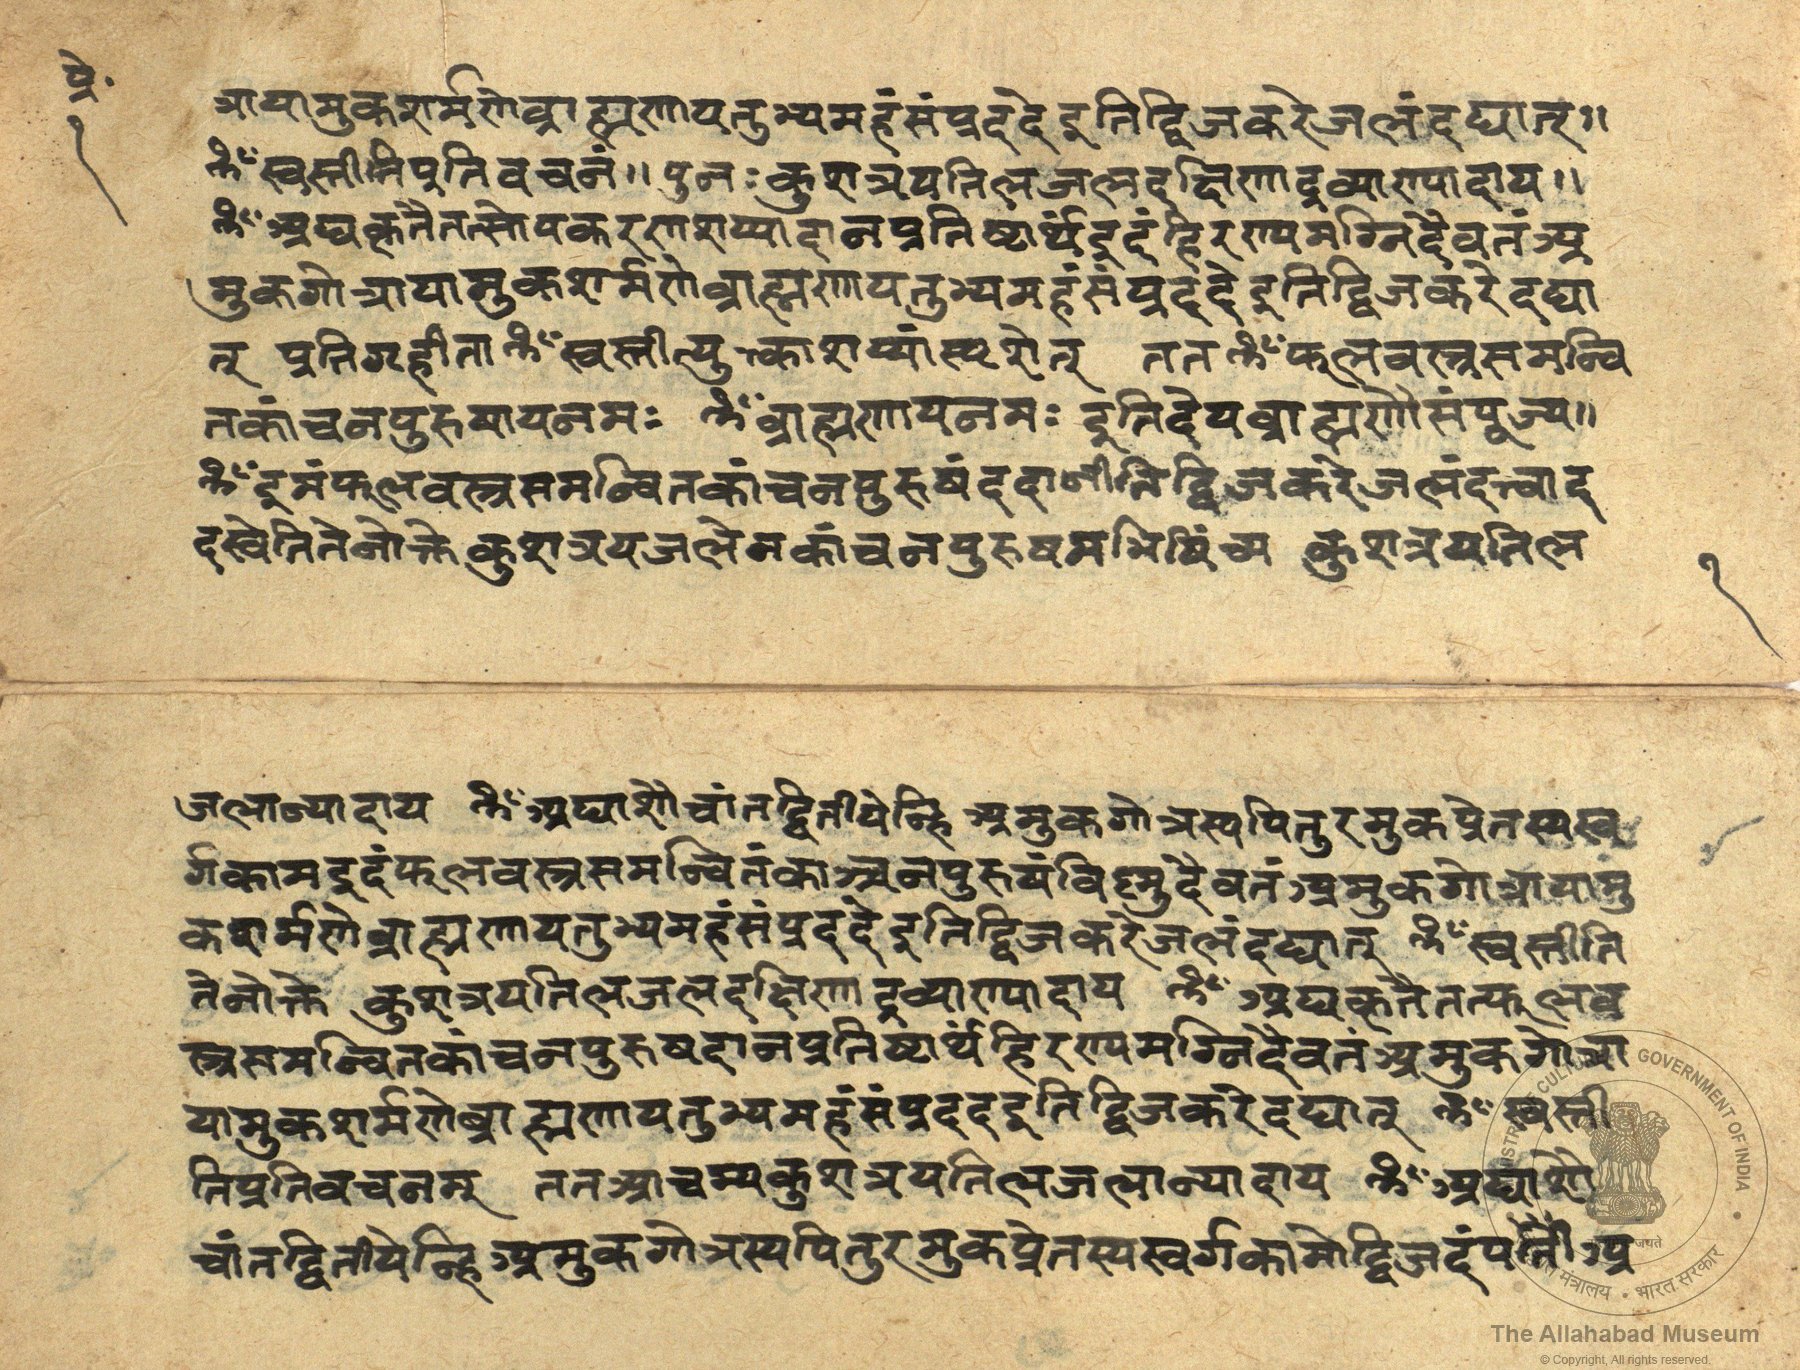 प्रे॰
१
त्रायामुकशर्मणेब्राह्मणायतुभ्यमहंसंप्रददेइतिद्विजकरेजलंदद्यात्॥
ॐस्वस्तीतिप्रतिवचनं॥ पुनः कुशत्रयतिलजलदक्षिणाद्रव्याण्यादाय॥
ॐअद्यकृतैतत्सोपकरणशय्यादानप्रतिष्ठार्थंइदंहिरण्यमग्निदैवतंअ
मुकगोत्रायामुकशर्मणेब्राह्मणायतुभ्यमहंसंप्रददेइतिद्विजकरेदद्या
त् प्रतिगृहीता ॐस्वस्तीत्युत्काशय्यांस्पृशेत् तत ॐफलवस्त्रसमन्वि
तकांचनपुरुषायनमः ॐब्राह्मणायनमः इतिदेयब्राह्मणौसंपूज्य॥
ॐइमंफलवस्त्रसमन्वितकांचनपुरुषंददाणीतिद्विजकरेजलंदत्वाद
दस्वेतितेनोक्तेकुशत्रयजलेनकांचनपुरुषमभिषिंच्य कुशत्रयतिल
१
जलान्यादाय ॐअद्याशौचांतद्वितीयेन्हि अमुकगोत्रस्यपितुरमुकप्रेतस्यस्व
र्गकामइदंफलवस्त्रसमन्वितंकाञ्चनपुरुषंविष्णुदैवतंअमुकगोत्रायामु
कशर्मणेब्राह्मणायतुभ्यमहंसंप्रददेइतिद्विजकरेजलंदद्यात् ॐस्वस्तीति
तेनोक्ते कुशत्रयतिलजलदक्षिणाद्रव्याण्यादाय ॐअद्यकृतैतत्फलव
स्त्रसमन्वितकांचनपुरुषदानप्रतिष्ठार्थंहिरण्यमग्निदैवतंअमुकगोत्रा
यामुकशर्मणेब्राह्मणायतुभ्यमहंसंप्रदददइतिद्विजकरेदद्यात् ॐस्वस्ती
तिप्रतिवचनम् ततआचम्यकुशत्रयतिलजलान्यादाय ॐअद्याशौ
चांतद्वितीयेन्हिअमुकगोत्रस्यपितुरमुकप्रेतस्यस्वर्गकामोद्विजदंपती अ
GOVERNMENT OF INDIA
भारत सरकार
The Allahabad Museum
© Copyright, All rights reserved.